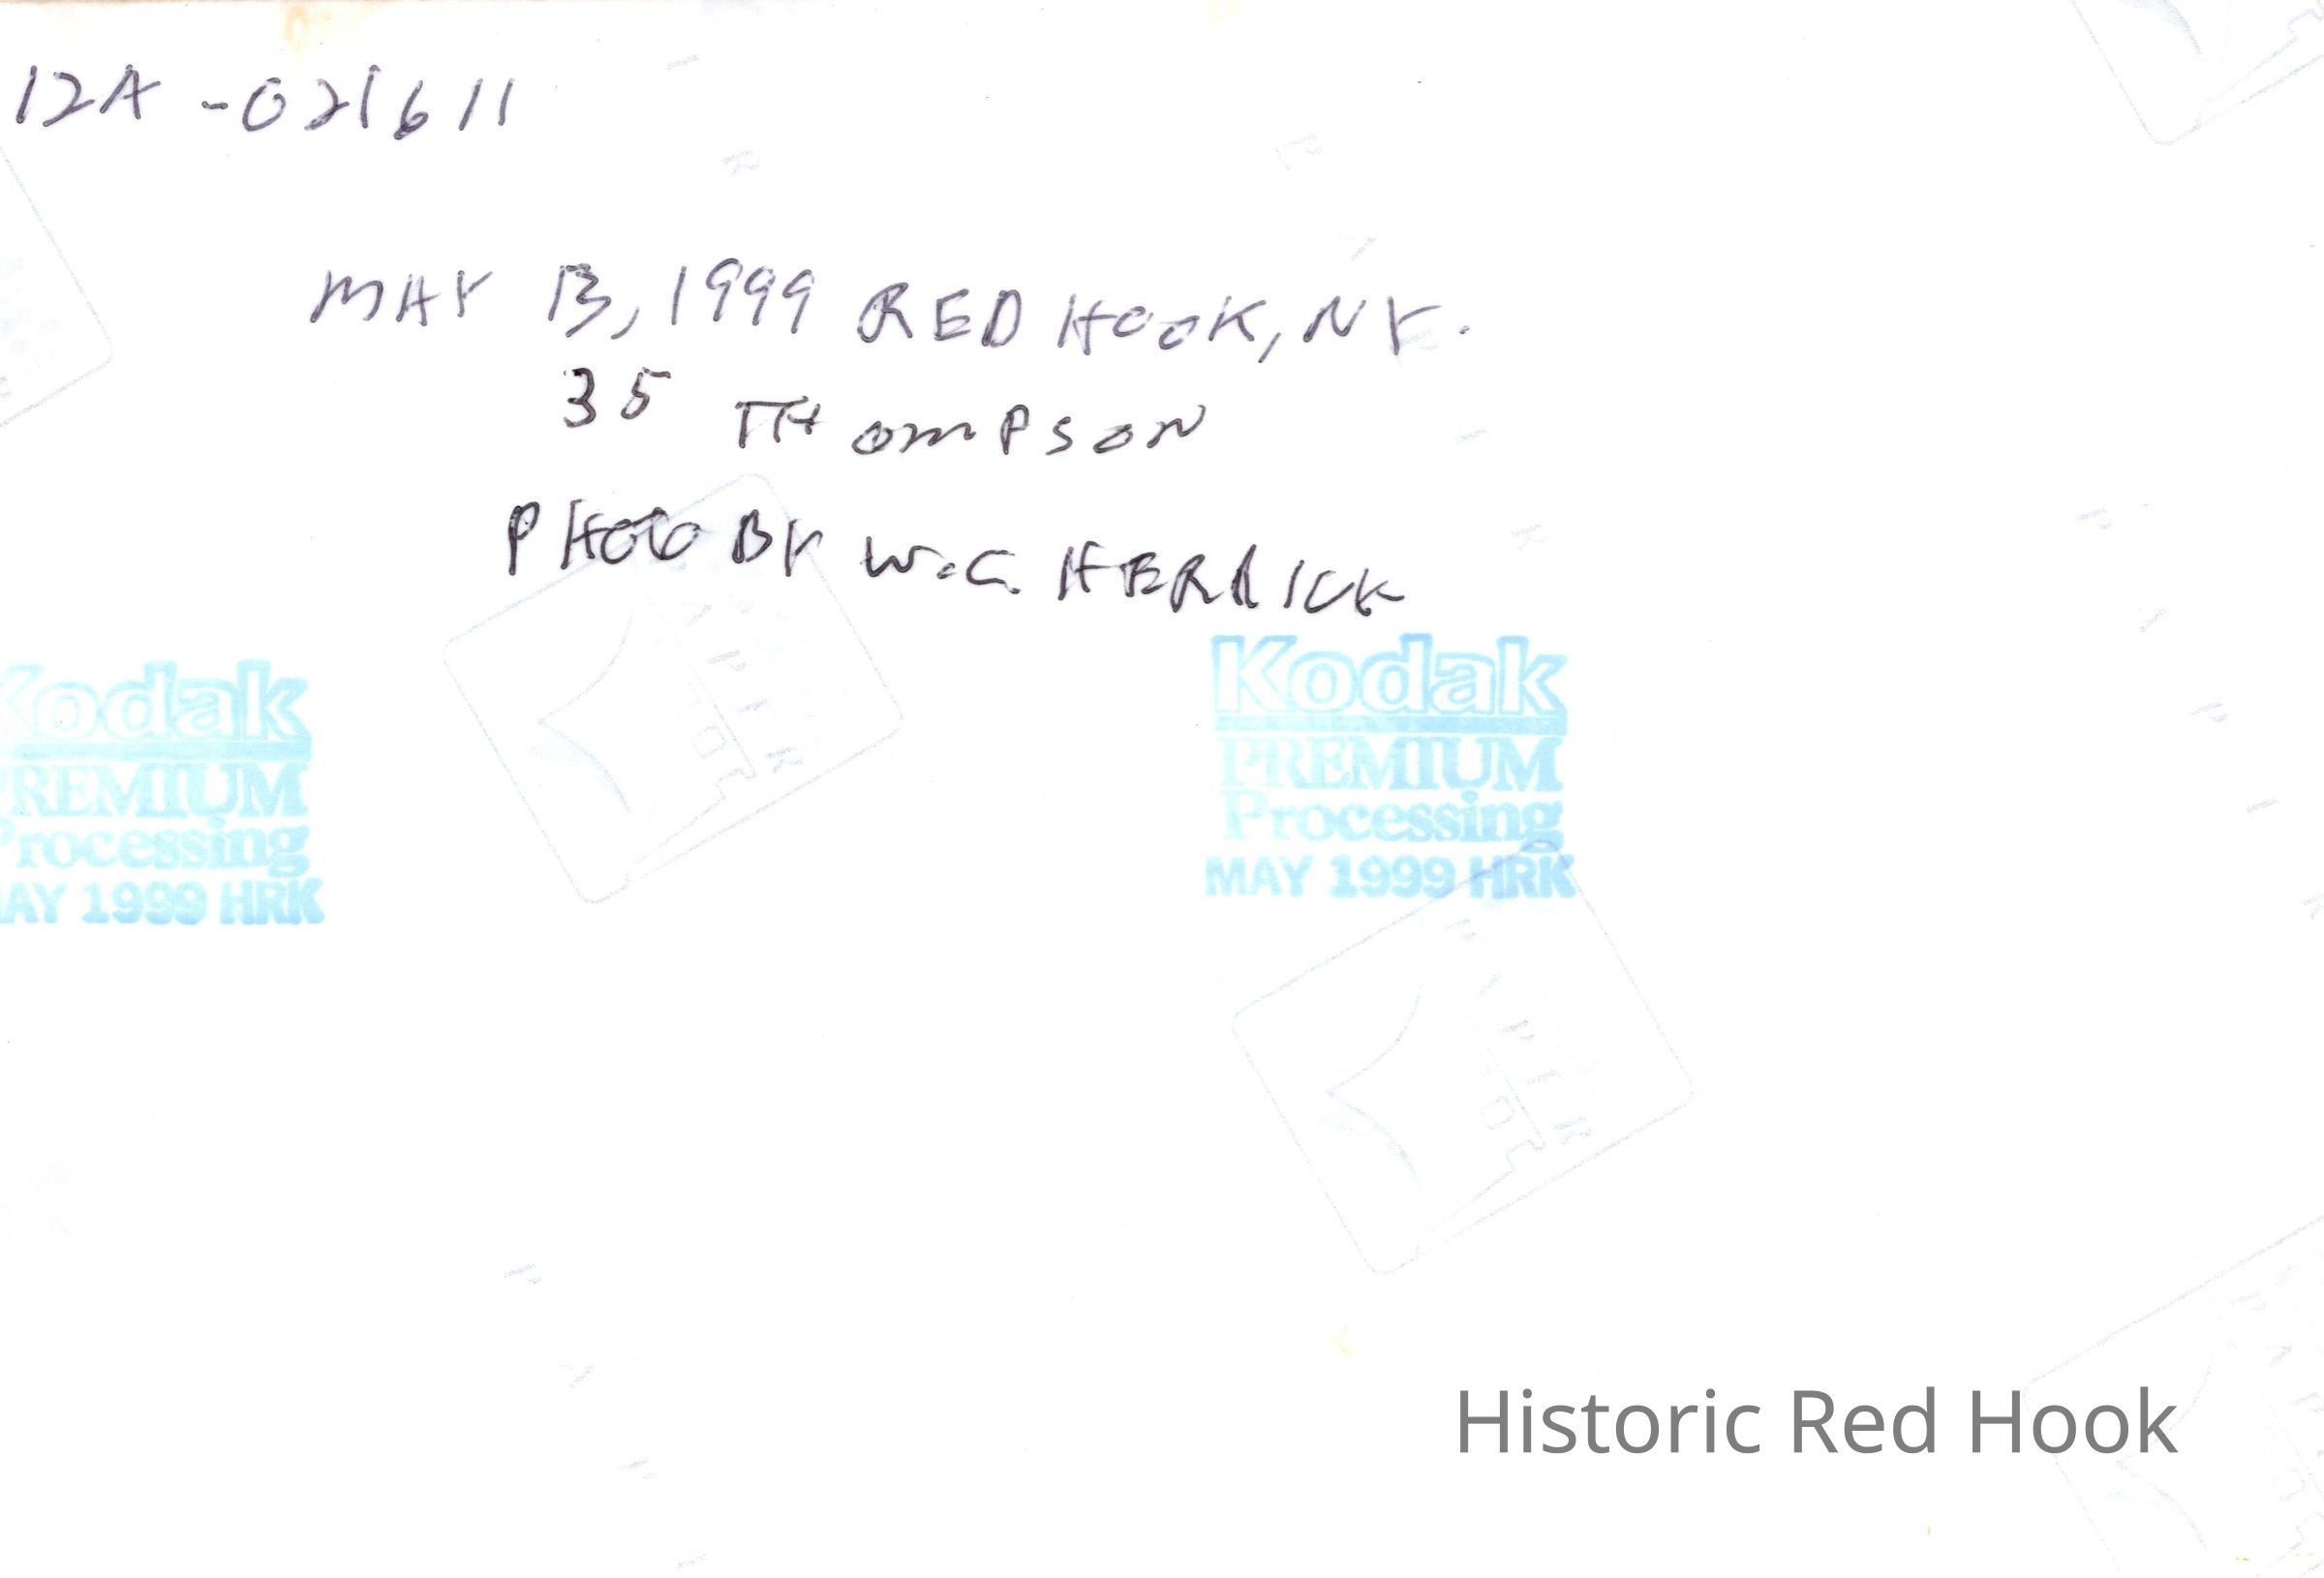 12A-021611
MAY 13, 1999 RED HOOK, NY.
35 THOMPSON
PHOTO BY W.C. HERRICK
Kodak
PREMIUM
Processing
MAY 1999 HRK
Kodak
PREMIUM
Processing
MAY 1999 HRK
Historic Red Hook